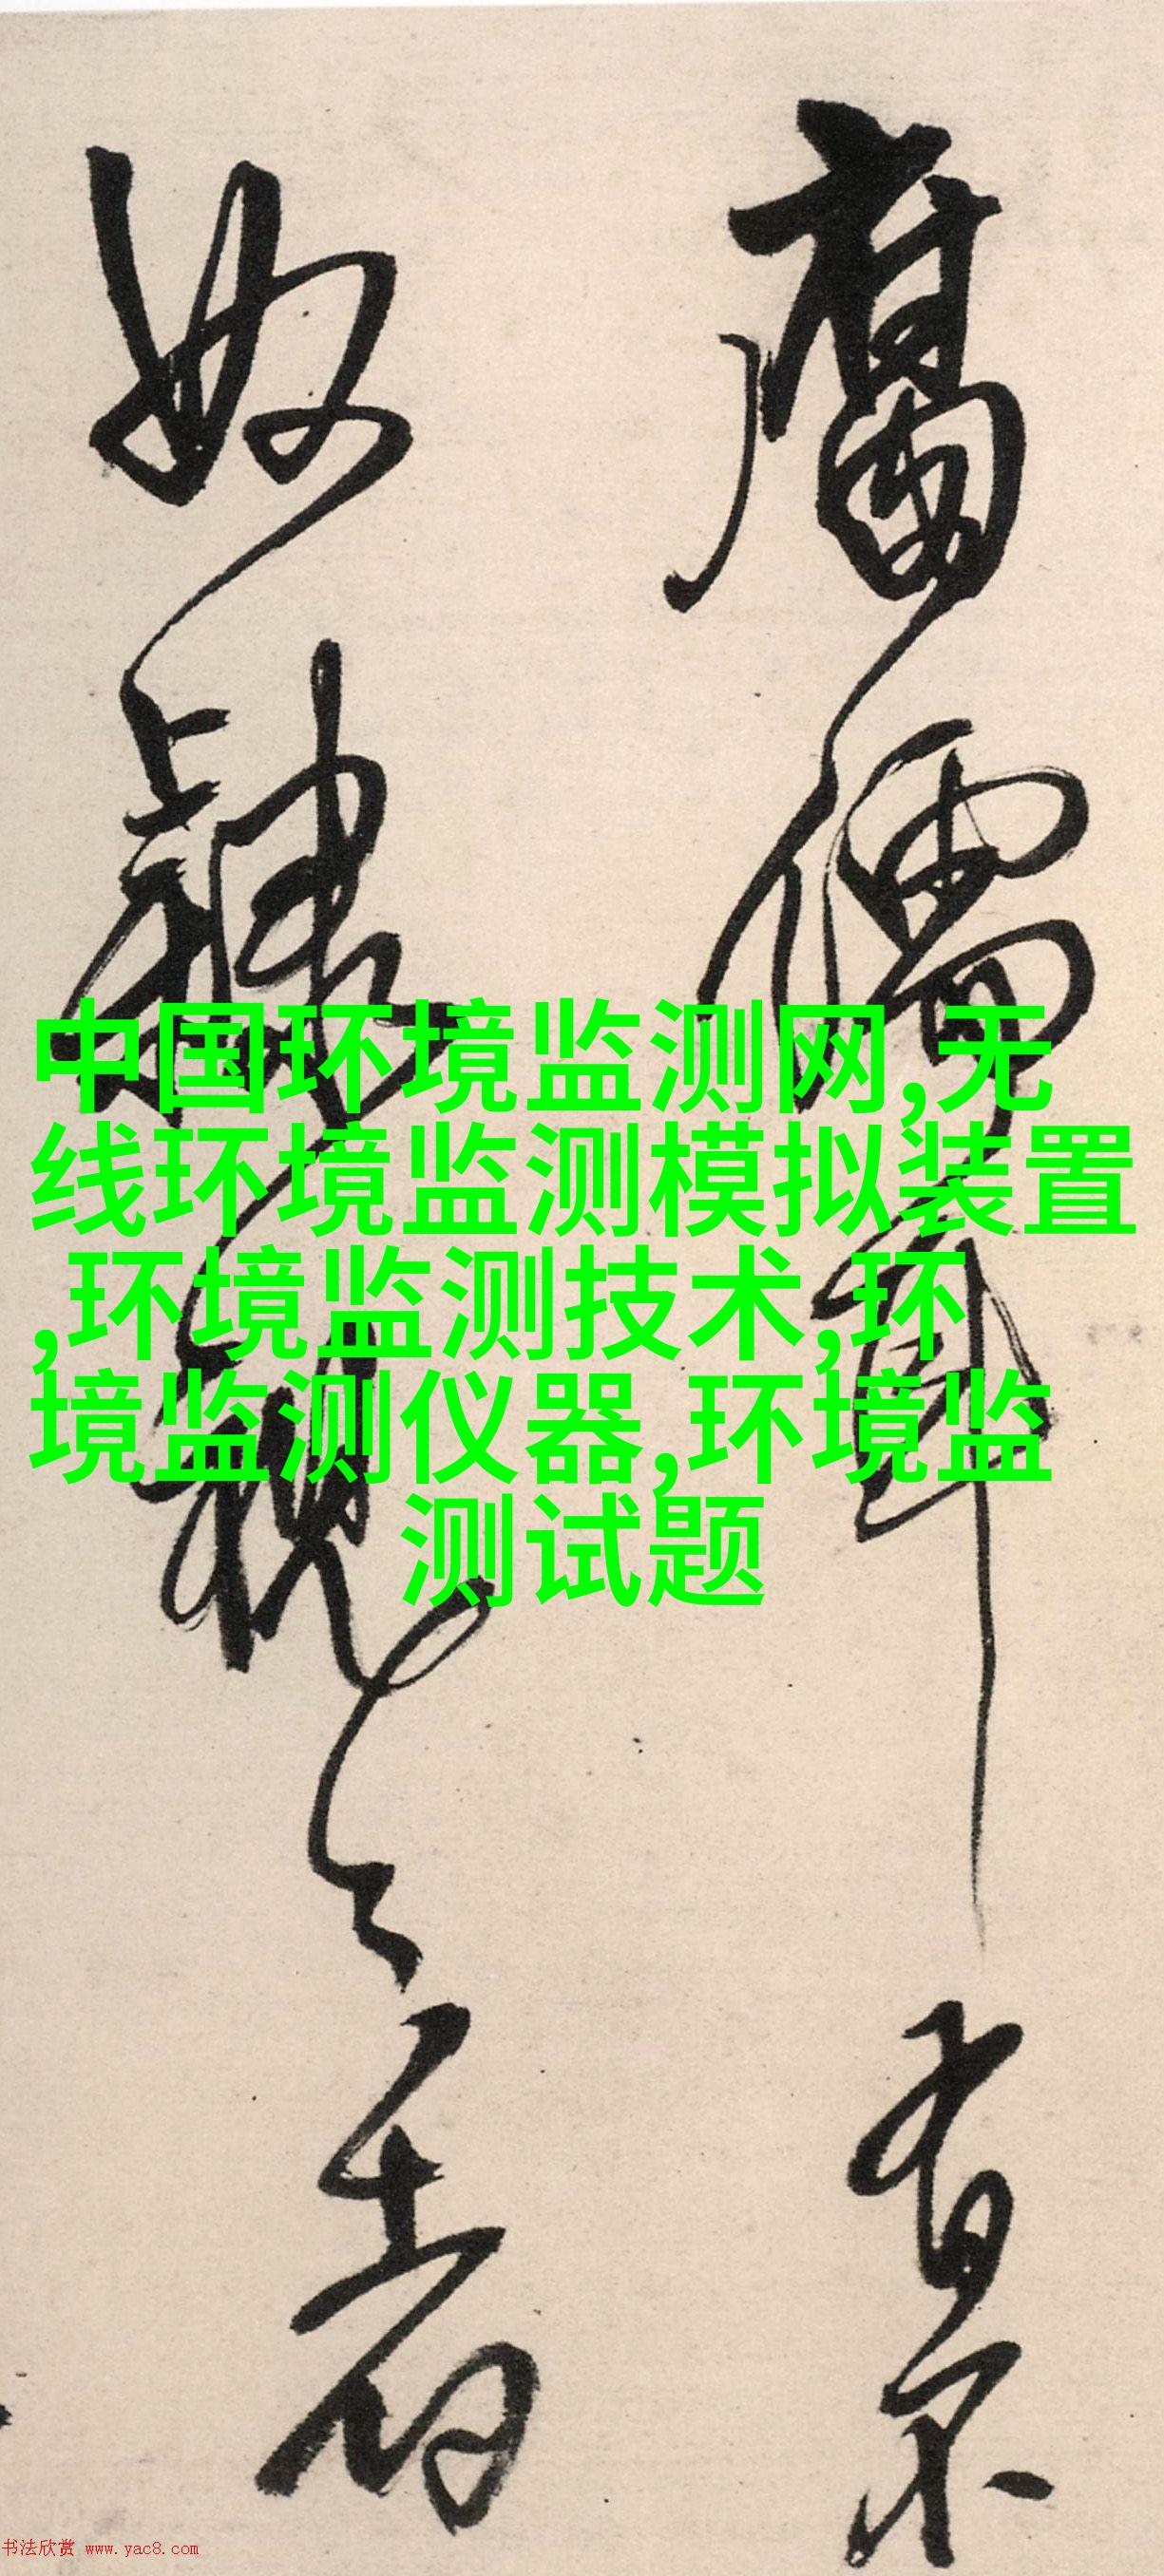 腐儒耳有不
奴隸視之者
中国环境监测网,无
线环境监测模拟装置
,环境监测技术,环
境监测仪器,环境监
测试题
书法欣赏 www.yac8.com